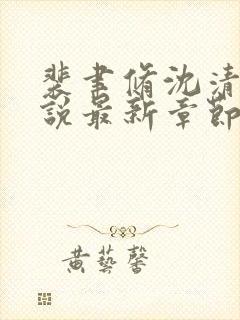 裴書脩沈清
說最新章節
黃藝馨